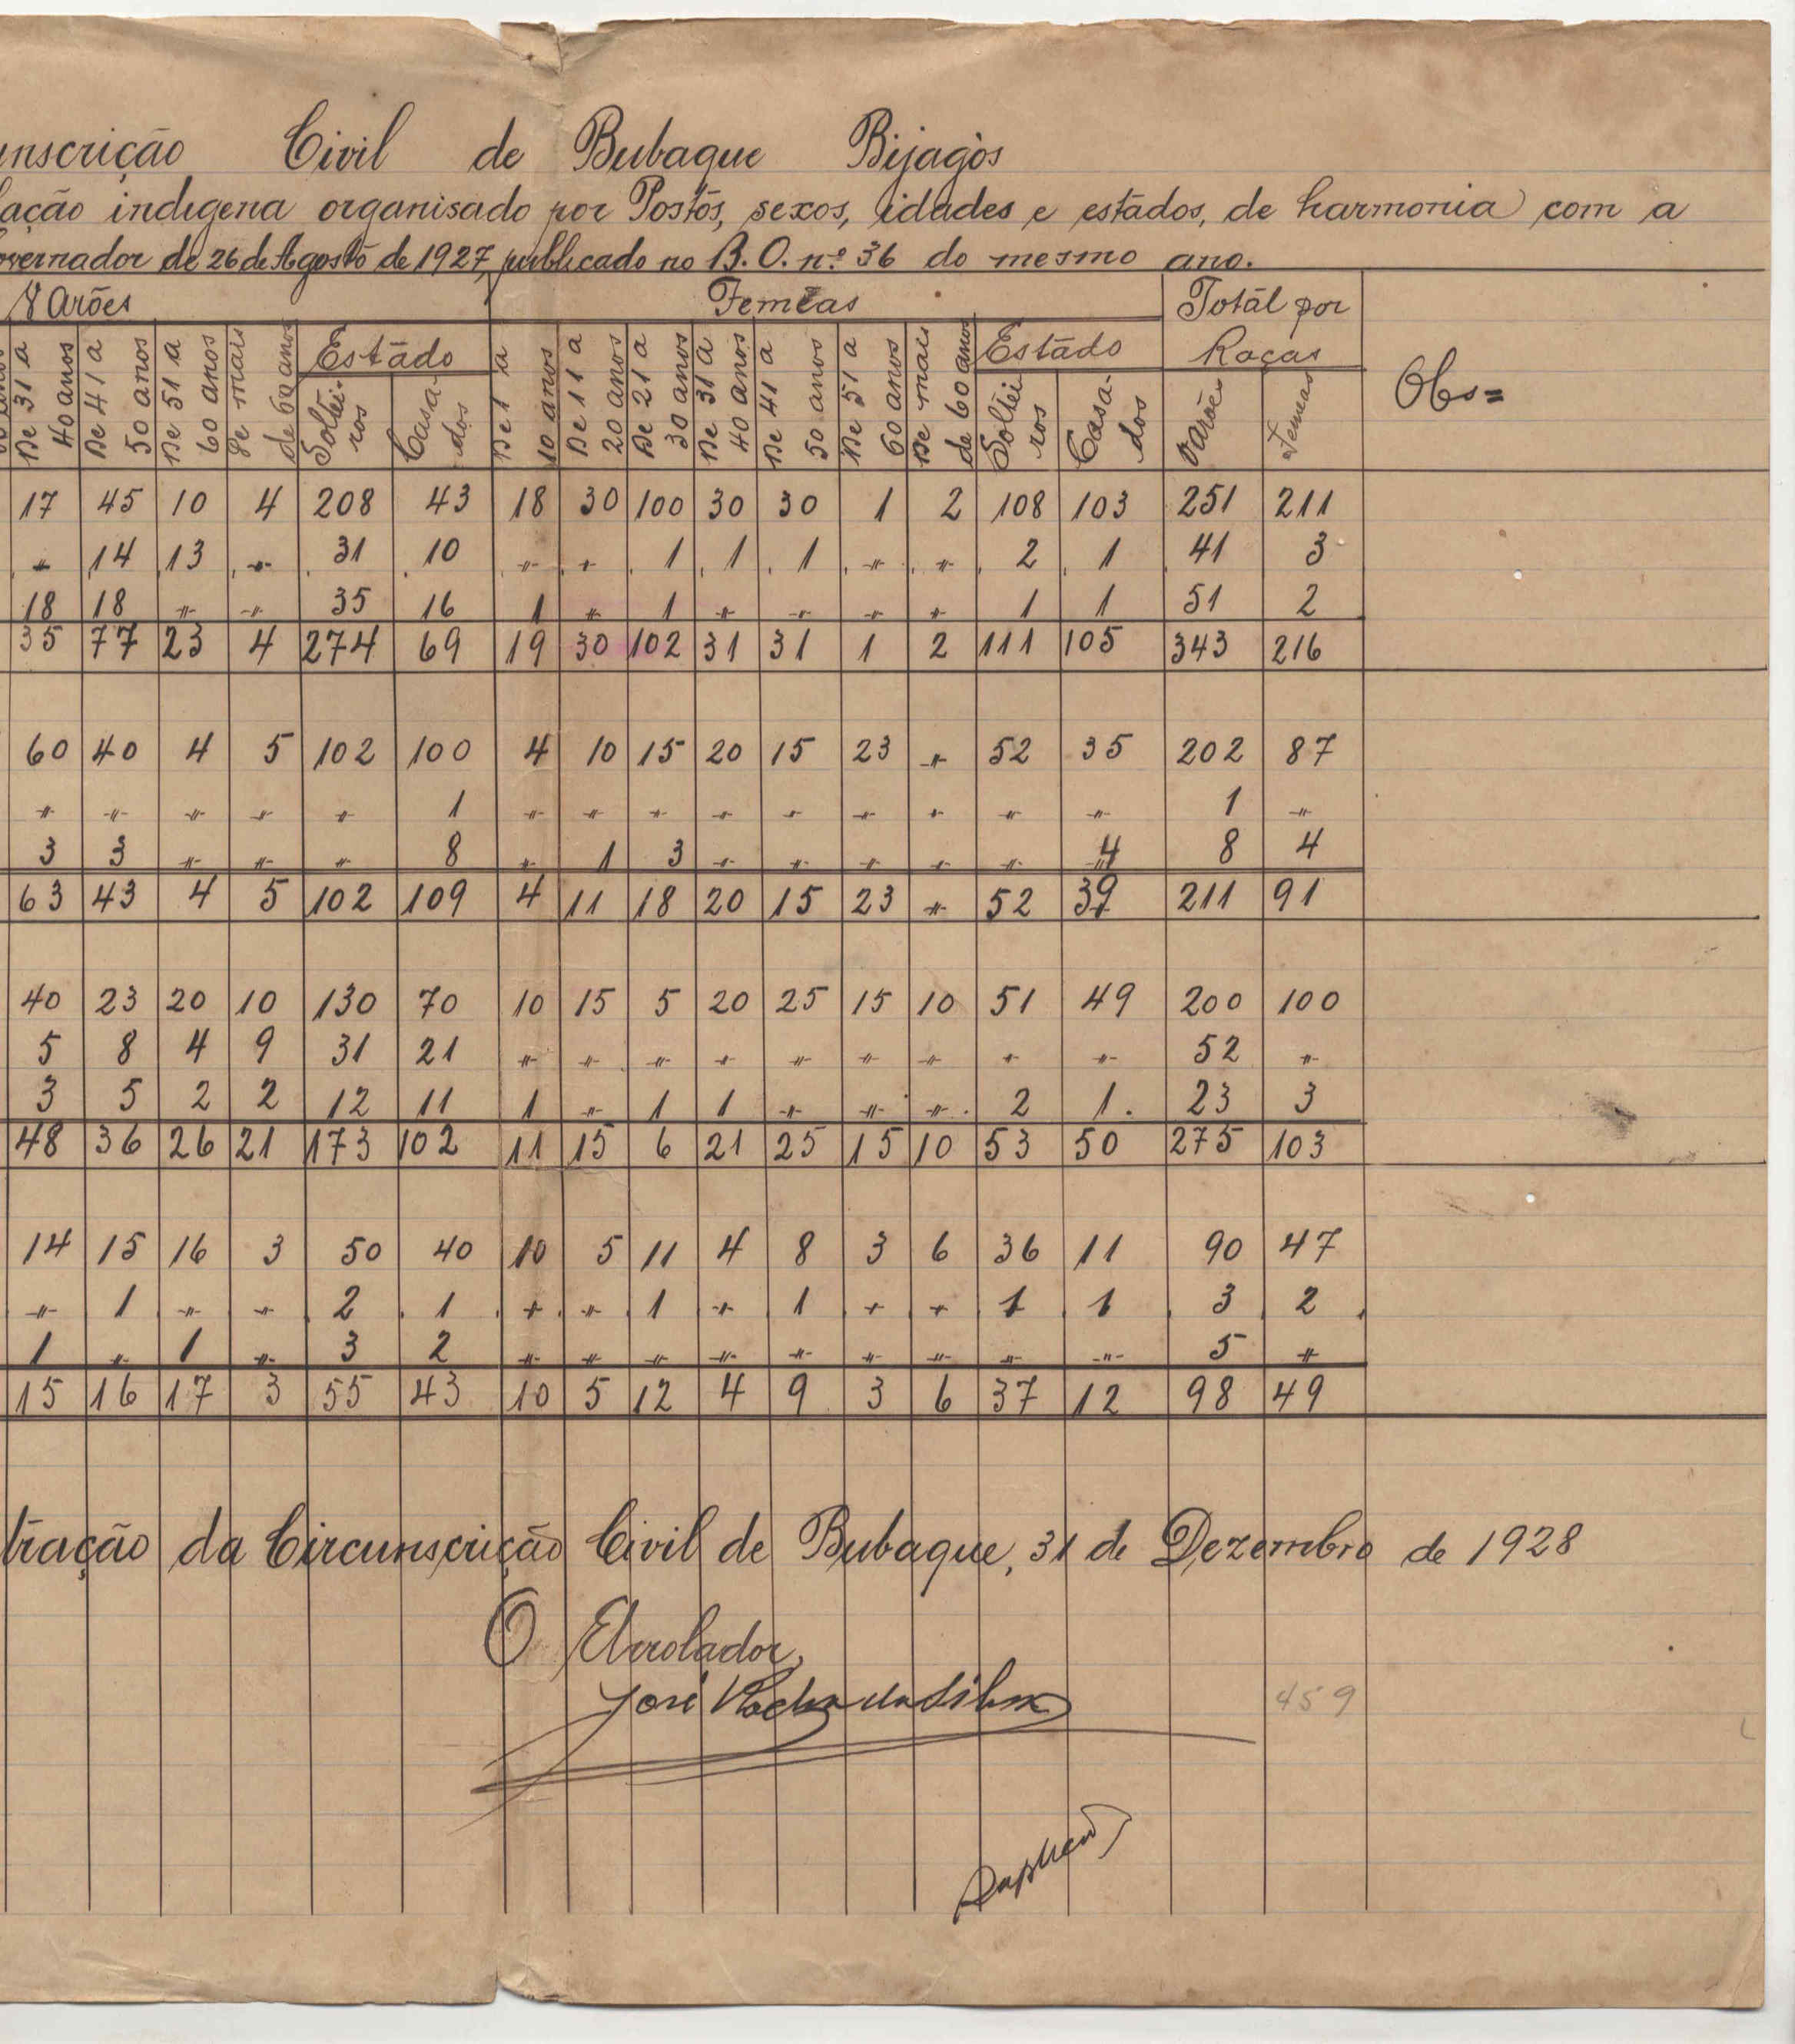 unscrição Civil de Bubaque Bijagòs
lação indigena organisado por Postos, sexos, idades e estados, de harmonia com a
overnador de 26 de Agosto de 1927, publicado no B. O. nº 36 do mesmo ano.
Varões Femeas Totál por
Raças Obs=
De 31 a 40 anos De 41 a 50 anos De 51 a 60 anos De mais de 60 anos Estado Soltei-ros Casa-dos De 1 a 10 anos De 11 a 20 anos De 21 a 30 anos De 31 a 40 anos De 41 a 50 anos De 51 a 60 anos De mais de 60 anos Estado Soltei-ros Casa-dos Varões Femeas
17 45 10 4 208 43 18 30 100 30 30 1 2 108 103 251 211
" 14 13 " 31 10 " " 1 1 1 " " 2 1 41 3
18 18 " " 35 16 1 " 1 " " " " 1 1 51 2
35 77 23 4 274 69 19 30 102 31 31 1 2 111 105 343 216
60 40 4 5 102 100 4 10 15 20 15 23 " 52 35 202 87
" " " " " 1 " " " " " " " " " 1 "
3 3 " " " 8 " 1 3 " " " " " 4 8 4
63 43 4 5 102 109 4 11 18 20 15 23 " 52 39 211 91
40 23 20 10 130 70 10 15 5 20 25 15 10 51 49 200 100
5 8 4 9 31 21 " " " " " " " " " 52 "
3 5 2 2 12 11 1 " 1 1 " " " 2 1. 23 3
48 36 26 21 173 102 11 15 6 21 25 15 10 53 50 275 103
14 15 16 3 50 40 10 5 11 4 8 3 6 36 11 90 47
" 1 " " 2 1 " " 1 " 1 " " 1 1 3 2
1 " 1 " 3 2 " " " " " " " " " 5 "
15 16 17 3 55 43 10 5 12 4 9 3 6 37 12 98 49
tração da Circunscrição Civil de Bubaque, 31 de Dezembro de 1928
O Arrolador,
José Rocha da Silva
459